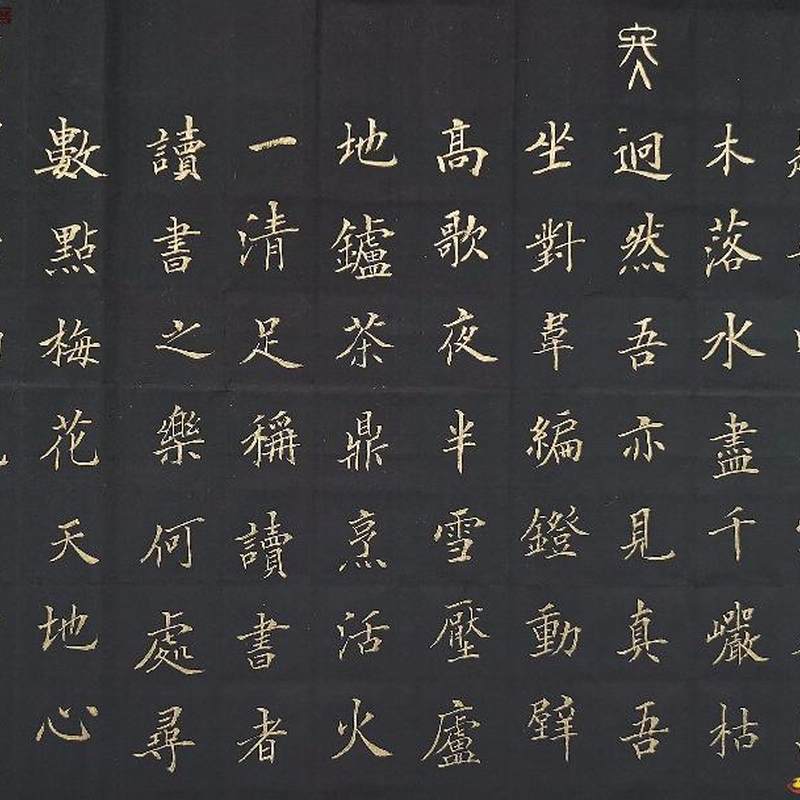 木落水盡千巖枯
迥然吾亦見真吾
坐對韋編鐙動壁
高歌夜半雪壓廬
地鑪茶鼎烹活火
一清足稱讀書者
讀書之樂何處尋
數點梅花天地心